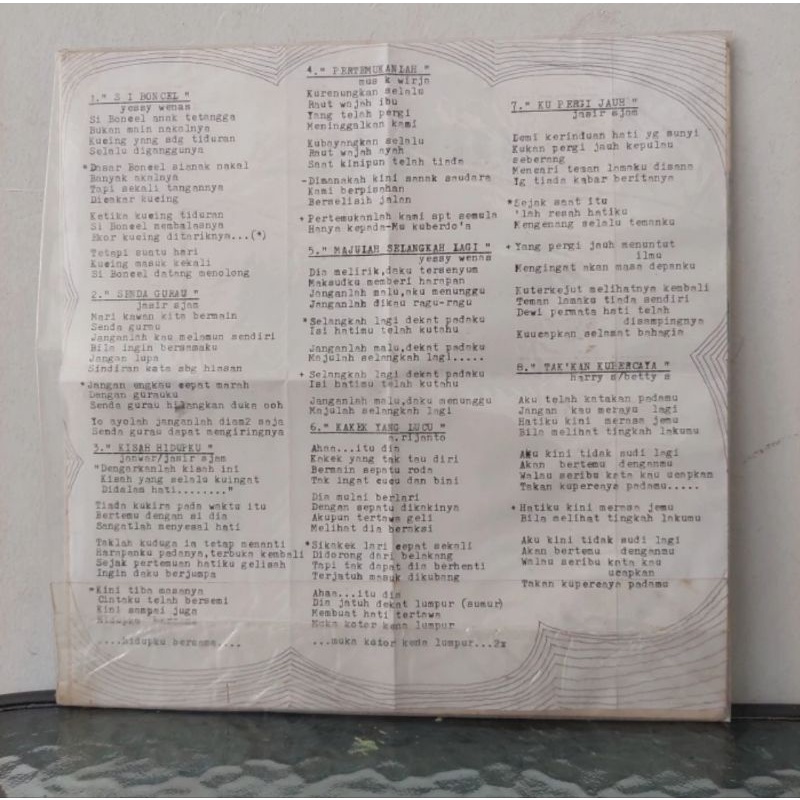 1." S I BONCEL "
yessy wenas
Si Boncel anak tetangga
Bukan main nakalnya
Kucing yang sdg tiduran
Selalu diganggunya
*Dasar Boncel sianak nakal
Banyak akalnya
Tapi sekali tangannya
Dicakar kucing
Ketika kucing tiduran
Si Boncel membalasnya
Ekor kucing ditariknya...(*)
Tetapi suatu hari
Kucing masuk kekali
Si Boncel datang menolong
2." SENDA GURAU "
jasir sjam
Mari kawan kita bermain
Senda gurau
Janganlah kau melamun sendiri
Bila ingin bersamaku
Jangan lupa
Sindiran kata sbg hiasan
*Jangan engkau cepat marah
Dengan gurauku
Senda gurau hilangkan duka ooh
Yo ayolah janganlah diam2 saja
Senda gurau dapat mengiringnya
3." KISAH HIDUPKU "
janwar/jasir sjam
"Dengarkanlah kisah ini
Kisah yang selalu kuingat
Didalam hati........"
Tiada kukira pada waktu itu
Bertemu dengan si dia
Sangatlah menyesal hati
Taklah kuduga ia tetap menanti
Harapanku padanya,terbuka kembali
Sejak pertemuan hatiku gelisah
Ingin daku berjumpa
*Kini tiba masanya
Cintaku telah bersemi
Kini sampai juga
Hidupku bersama
....hidupku bersama....
4." PERTEMUKANLAH "
mus k wirja
Kurenungkan selalu
Raut wajah ibu
Yang telah pergi
Meninggalkan kami
Kubayangkan selalu
Raut wajah ayah
Saat kinipun telah tiada
-Dimanakah kini sanak saudara
Kami berpisahan
Berselisih jalan
+Pertemukanlah kami spt semula
Hanya kepada-Mu kuberdo'a
5." MAJULAH SELANGKAH LAGI "
yessy wenas
Dia melirik,daku tersenyum
Maksudku memberi harapan
Janganlah malu,aku menunggu
Janganlah dikau ragu-ragu
*Selangkah lagi dekat padaku
Isi hatimu telah kutahu
Janganlah malu,dekat padaku
Majulah selangkah lagi.....
+ Selangkah lagi dekat padaku
Isi hatimu telah kutahu
Janganlah malu,daku menunggu
Majulah selangkah lagi
6." KAKEK YANG LUCU "
a.rijanto
Ahaa...itu dia
Kakek yang tak tau diri
Bermain sepatu roda
Tak ingat cucu dan bini
Dia mulai berlari
Dengan sepatu dikakinya
Akupun tertawa geli
Melihat dia beraksi
*Sikakek lari cepat sekali
Didorong dari belakang
Tapi tak dapat dia berhenti
Terjatuh masuk dikubang
Ahaa...itu dia
Dia jatuh dekat lumpur (sumur)
Membuat hati tertawa
Muka kotor kena lumpur
...muka kotor kena lumpur...2x
7." KU PERGI JAUH "
jasir sjam
Demi kerinduan hati yg sunyi
Kukan pergi jauh kepulau
seberang
Mencari teman lamaku disana
Yg tiada kabar beritanya
*Sejak saat itu
'lah resah hatiku
Mengenang selalu temanku
+ Yang pergi jauh menuntut
ilmu
Mengingat akan masa depanku
Kuterkejut melihatnya kembali
Teman lamaku tiada sendiri
Dewi permata hati telah
disampingnya
Kuucapkan selamat bahagia
8." TAK'KAN KUPERCAYA "
harry s/betty s
Aku telah katakan padamu
Jangan kau merayu lagi
Hatiku kini merasa jemu
Bila melihat tingkah lakumu
Aku kini tidak sudi lagi
Akan bertemu denganmu
Walau seribu kata kau ucapkan
Takan kupercaya padamu.....
*Hatiku kini merasa jemu
Bila melihat tingkah lakumu
Aku kini tidak sudi lagi
Akan bertemu denganmu
Walau seribu kata kau
ucapkan
Takan kupercaya padamu